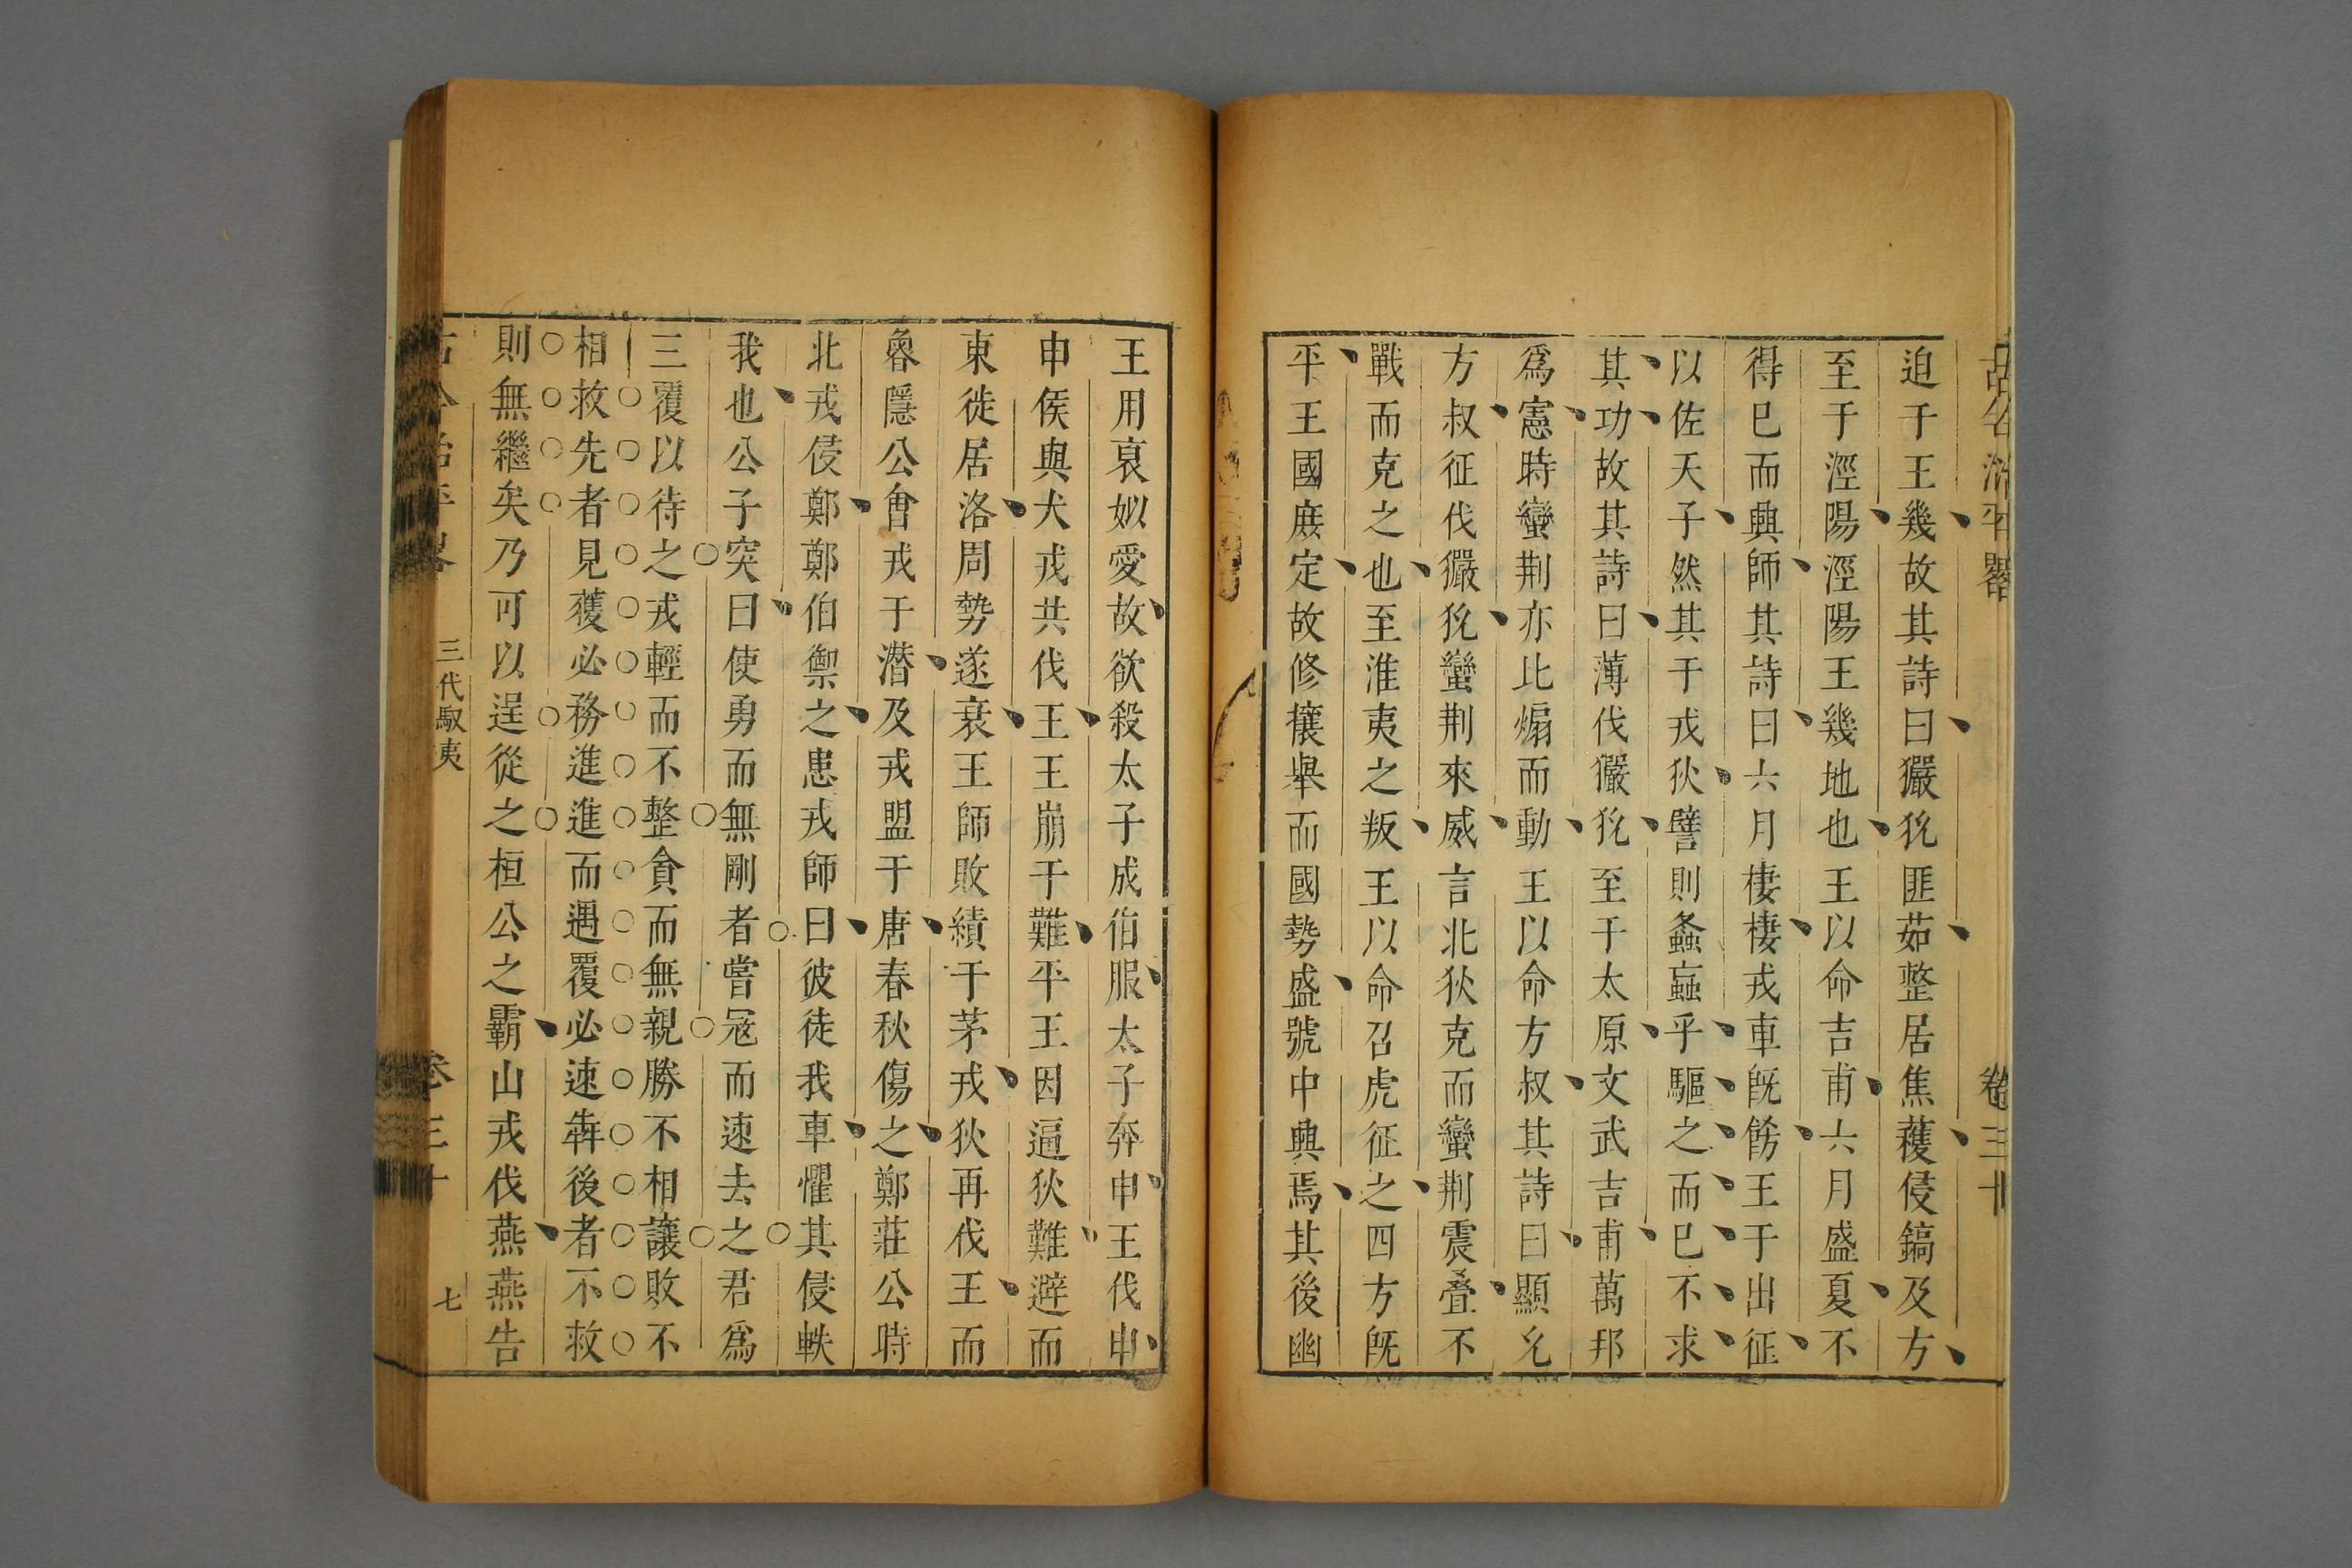 古今治平畧 卷三十
迫于王幾故其詩曰玁狁匪茹整居焦穫侵鎬及方
至于涇陽涇陽王幾地也王以命吉甫六月盛夏不
得已而興師其詩曰六月棲棲戎車旣飭王于出征
以佐天子然其于戎狄譬則螽蝱乎驅之而已不求
其功故其詩曰薄伐玁狁至于太原文武吉甫萬邦
爲憲時蠻荆亦比煽而動王以命方叔其詩曰顯允
方叔征伐玁狁蠻荆來威言北狄克而蠻荆震叠不
戰而克之也至淮夷之叛王以命召虎征之四方旣
平王國庶定故修攘舉而國勢盛號中興焉其後幽
王用裒姒愛故欲殺太子成伯服太子奔申王伐申
申侯與犬戎共伐王王崩于難平王因逼狄難避而
東徙居洛周勢遂衰王師敗績于茅戎狄再伐王而
魯隱公會戎于潛及戎盟于唐春秋傷之鄭莊公時
北戎侵鄭鄭伯禦之患戎師曰彼徒我車懼其侵軼
我也公子突曰使勇而無剛者嘗寇而速去之君爲
三覆以待之戎輕而不整貪而無親勝不相讓敗不
相救先者見獲必務進進而遇覆必速犇後者不救
則無繼矣乃可以逞從之桓公之霸山戎伐燕燕告
古今治平畧 三代馭夷 卷三十 七